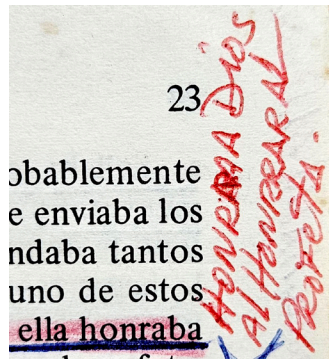 23
obablemente
e enviaba los
ndaba tantos
uno de estos
ella honraba
HONRABA DIOS
AL HONRAR AL
PROFETA.